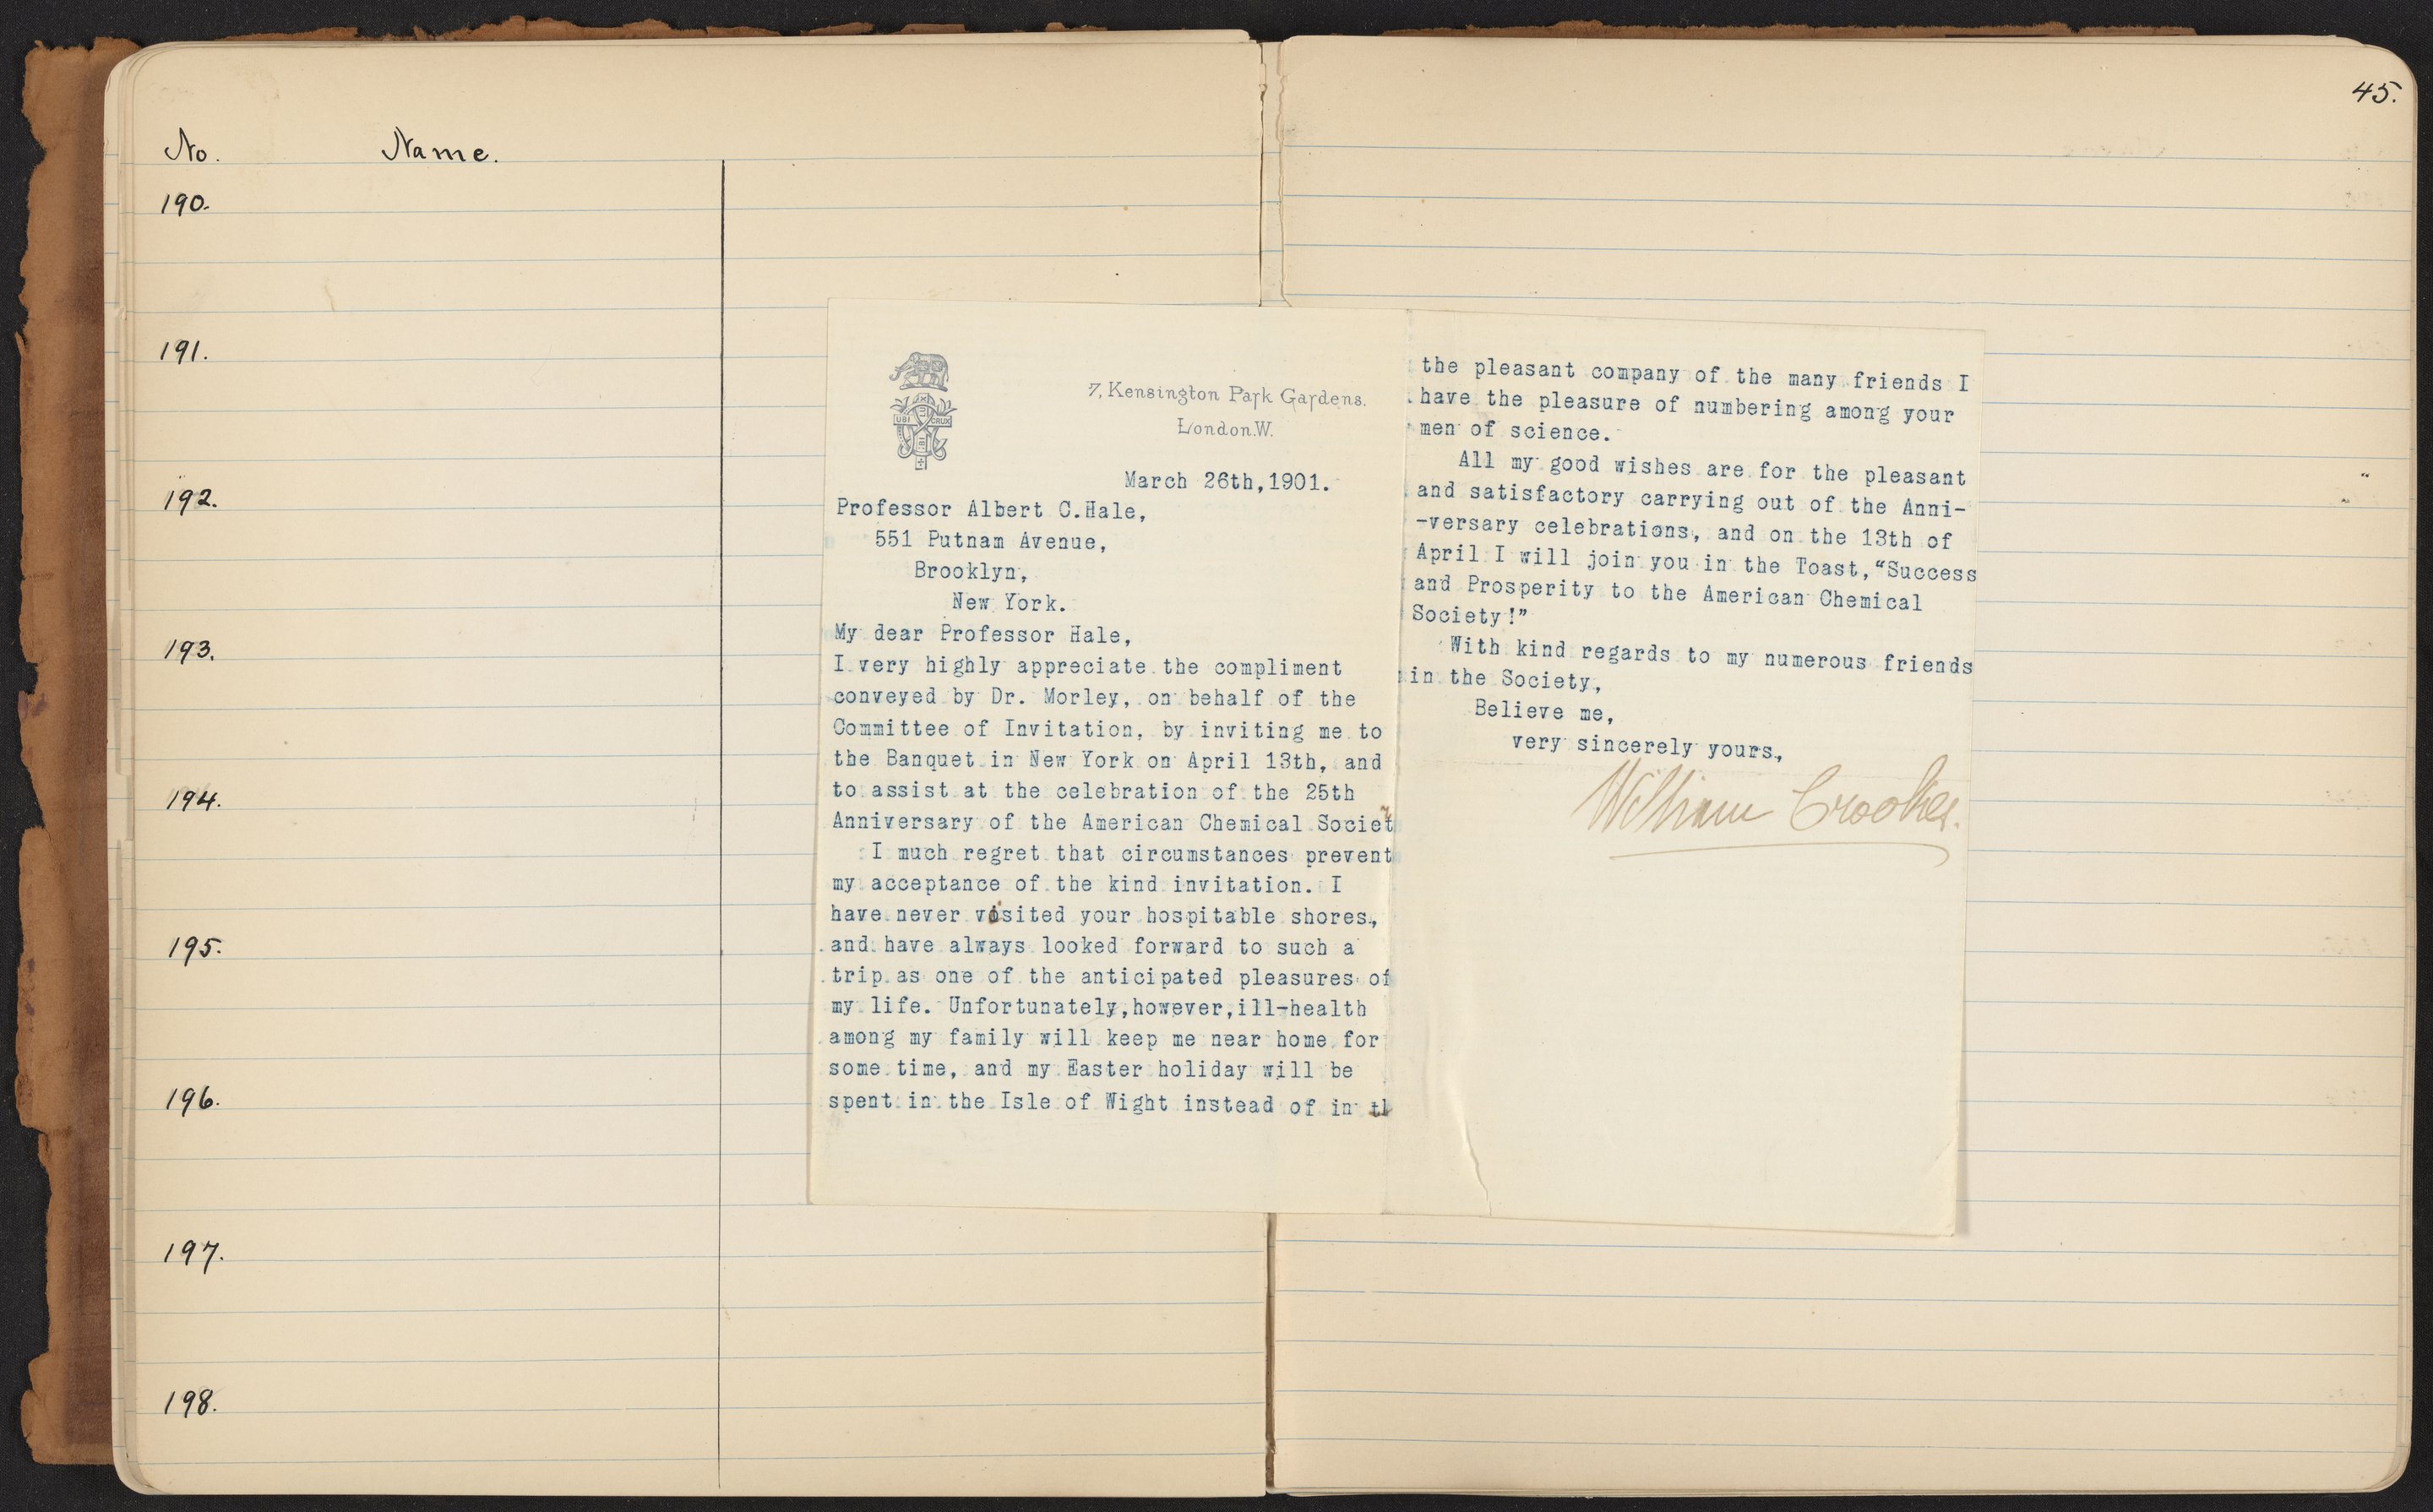 45.
No. Name.
190.
191.
192.
193.
194.
195.
196.
197.
198.
UBI CRUX
7, Kensington Park Gardens.
London.W.
March 26th,1901.
Professor Albert C.Hale,
551 Putnam Avenue,
Brooklyn,
New York.
My dear Professor Hale,
I very highly appreciate the compliment
conveyed by Dr. Morley, on behalf of the
Committee of Invitation, by inviting me to
the Banquet in New York on April 13th, and
to assist at the celebration of the 25th
Anniversary of the American Chemical Society
I much regret that circumstances prevent
my acceptance of the kind invitation. I
have never visited your hospitable shores,
and have always looked forward to such a
trip as one of the anticipated pleasures of
my life. Unfortunately,however,ill-health
among my family will keep me near home for
some time, and my Easter holiday will be
spent in the Isle of Wight instead of in th
the pleasant company of the many friends I
have the pleasure of numbering among your
men of science.
All my good wishes are for the pleasant
and satisfactory carrying out of the Anni-
-versary celebrations, and on the 13th of
April I will join you in the Toast,"Success
and Prosperity to the American Chemical
Society!"
With kind regards to my numerous friends
in the Society,
Believe me,
very sincerely yours,
William Crookes.